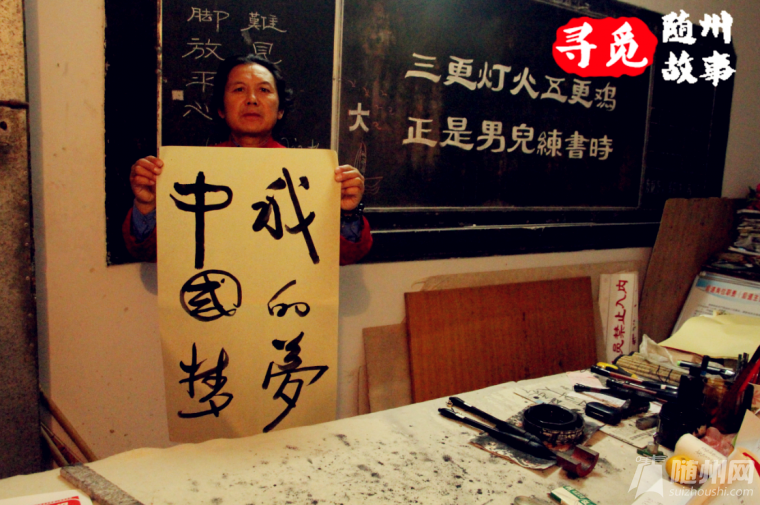 寻觅
随州
故事
難見
脚放平心
三更灯火五更鸡
正是男兒練書時
大
我的夢
中國梦
禁止入内
随州网
suizhoushi.com